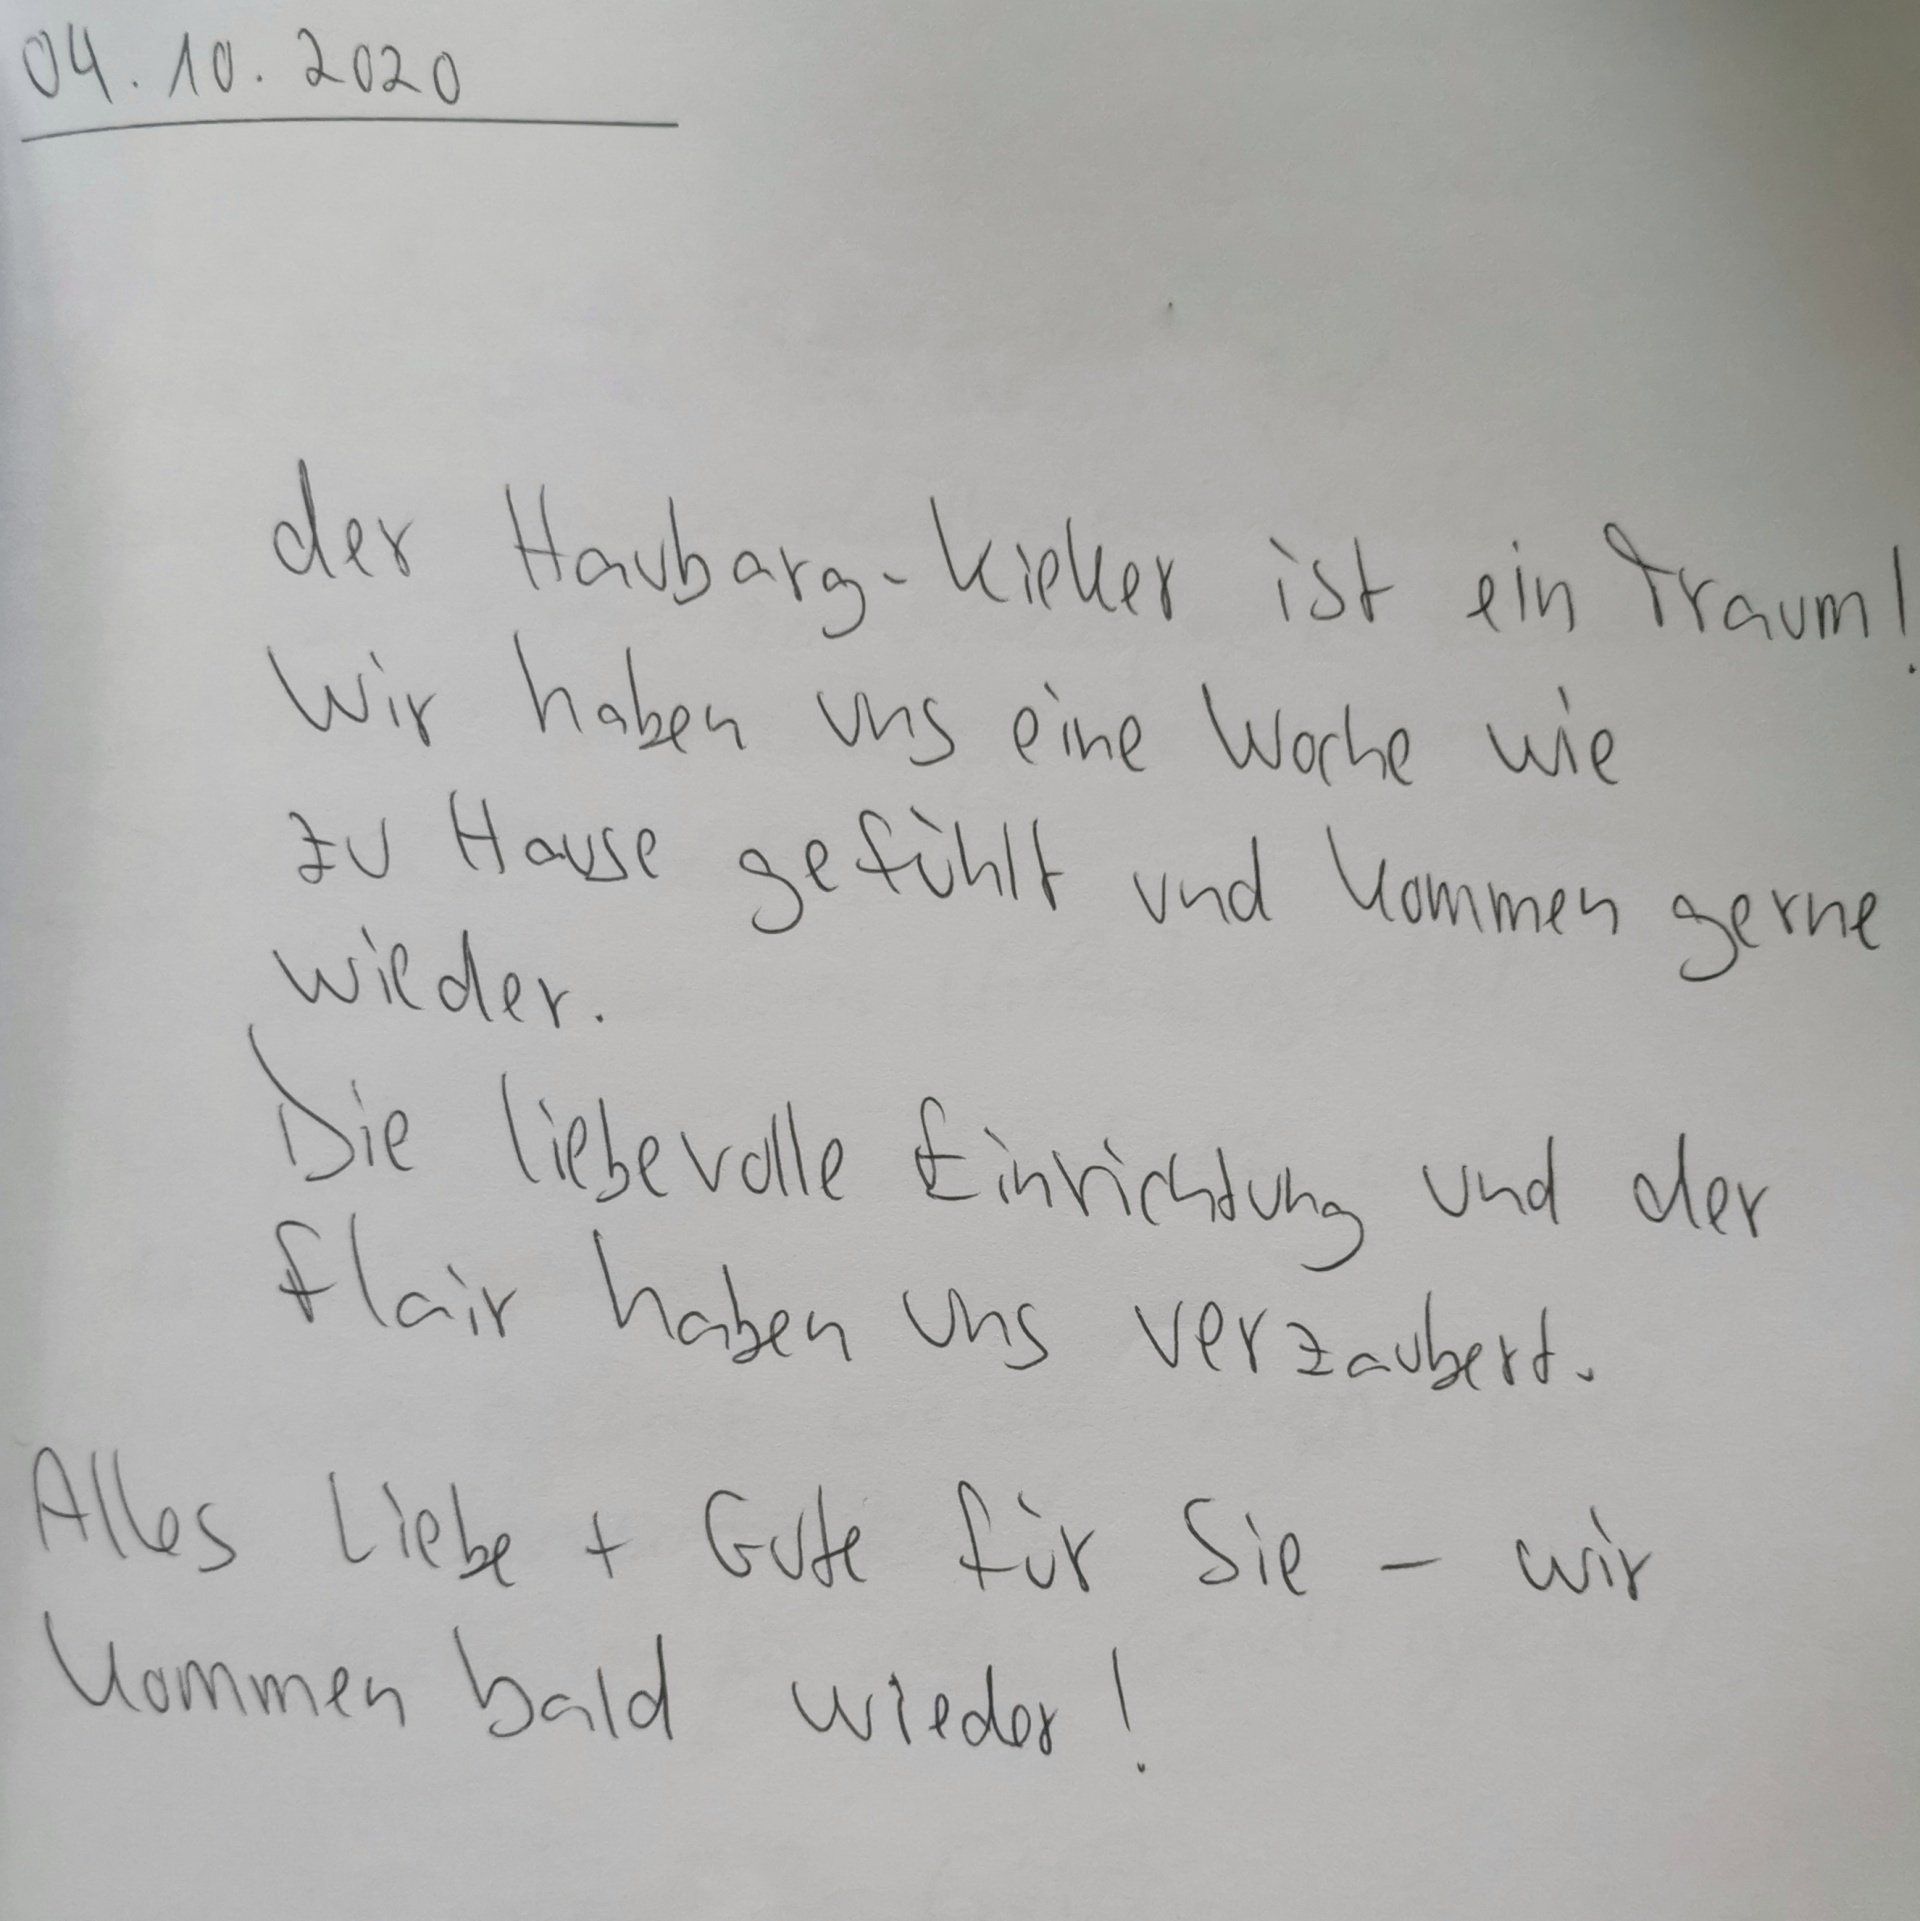 04.10.2020
der Haubarg-Kieker ist ein Traum!
Wir haben uns eine Woche wie
zu Hause gefühlt und kommen gerne
wieder.
Die liebevolle Einrichtung und der
Flair haben uns verzaubert.
Alles Liebe + Gute für Sie - wir
kommen bald wieder!